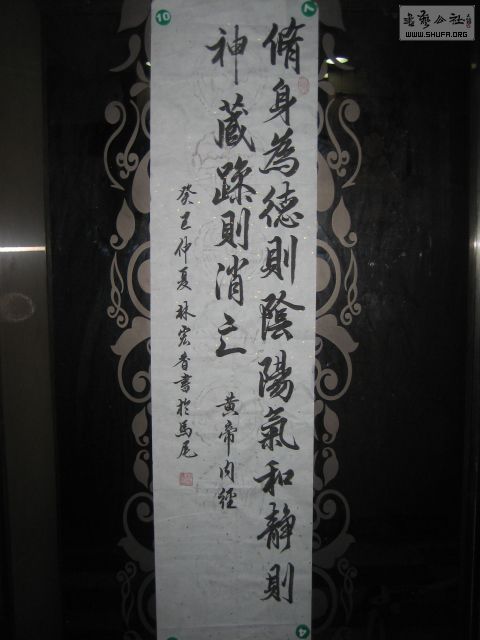 脩身為德則陰陽氣和靜則
神藏躁則消亡
黄帝内經
癸巳仲夏林宏香書於馬尾
書藝公社
WWW.SHUFA.ORG
10
7
4